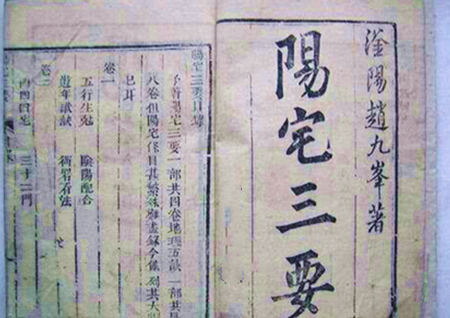 滏陽趙九峯著
陽宅三要
陽宅三要目錄
予著陽宅三要一部共四卷地理五訣一部共
八卷但陽宅條目甚繁難盡錄今僅列其大
巳耳
卷一
五行生剋 陰陽配合
遊年歌訣 衙署看法
卷二
四宅 三十二門